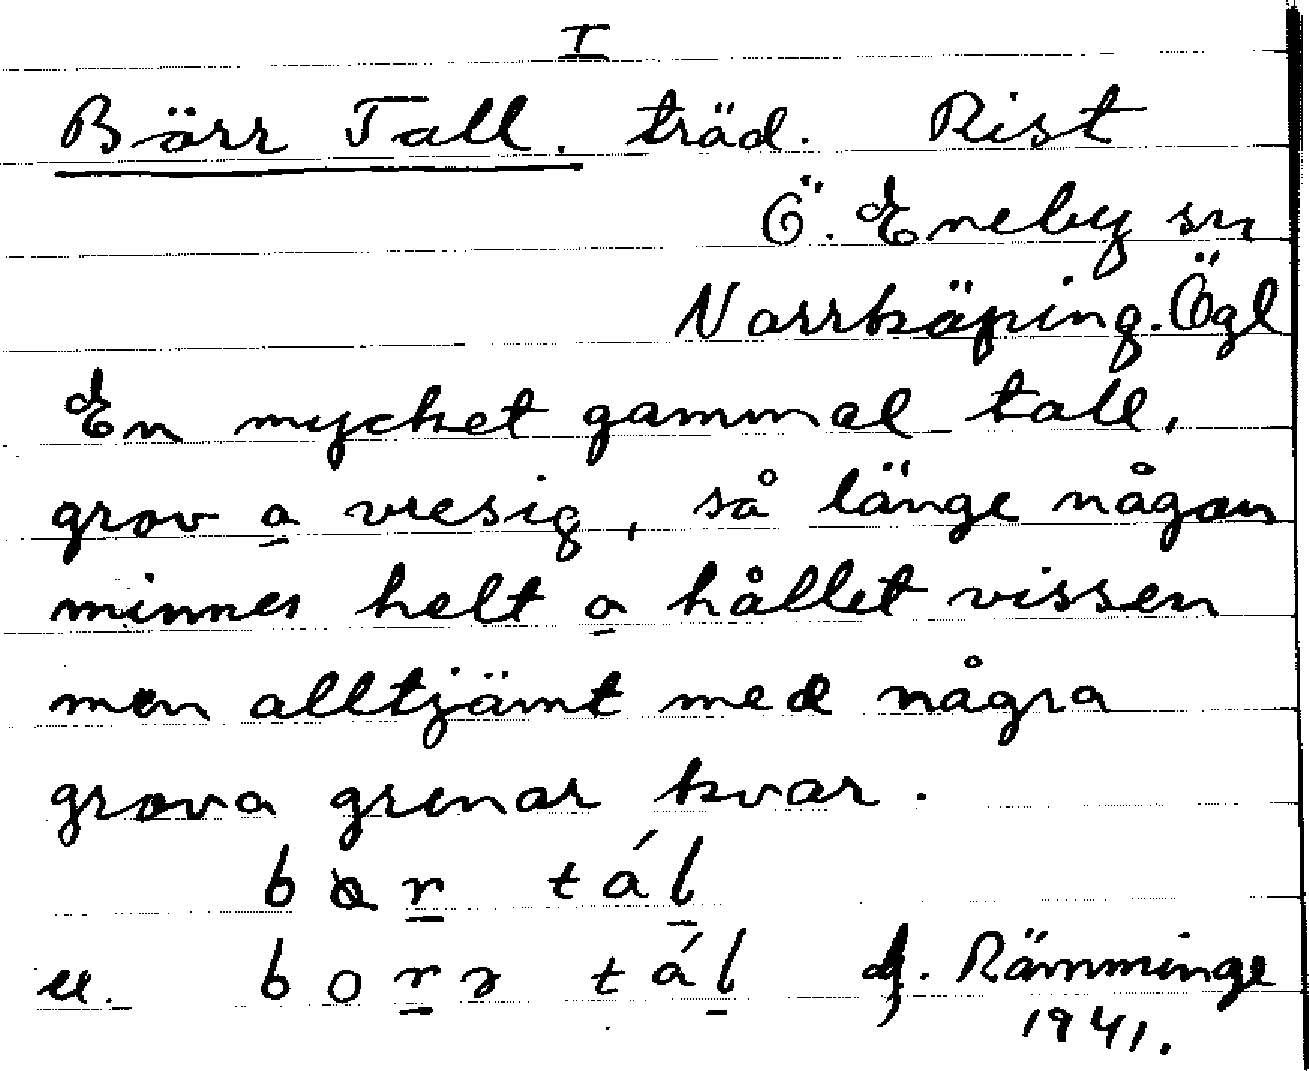 I
Börr Tall. träd. Rist
Ö. Eneby sn
Norrköping. Ögl
En mycket gammal tall,
grov o vresig, så länge någon
minnes helt o hållet vissen
men alltjämt med några
grova grenar kvar.
tál
u. tál J. Rämminge
1941.